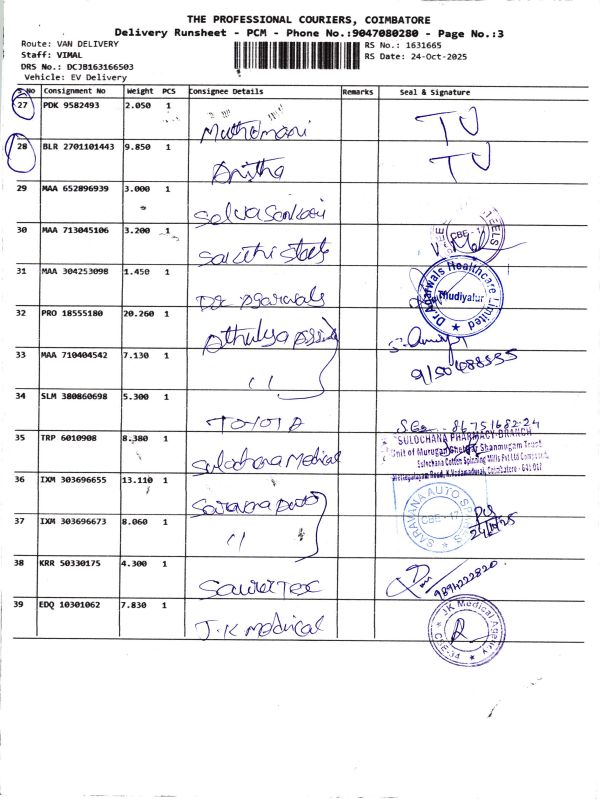 THE PROFESSIONAL COURIERS, COIMBATORE
Delivery Runsheet - PCM - Phone No.:9047080280 - Page No.:3
Route: VAN DELIVERY
Staff: VIMAL
DRS No.: DCJB163166503
Vehicle: EV Delivery
RS No.: 1631665
RS Date: 24-Oct-2025
S.No Consignment No Weight PCS Consignee Details Remarks Seal & Signature
27 PDK 9582493 2.050 1
Muthumani TU
28 BLR 2701101443 9.850 1
Anitha TU
29 MAA 652896939 3.000 1
Selva Sankari
30 MAA 713045106 3.200 1
Sakthi Steels
CBE - EELS
31 MAA 304253098 1.450 1
Dr Agarwals
Dr.Agarwals Healthcare Limited
Mudiyalur
32 PRO 18555180 20.260 1
Athulya
33 MAA 710404542 7.130 1
"
34 SLM 380860698 5.300 1
TOYOTA
35 TRP 6010908 8.380 1
Sulochana Medical
SULOCHANA PHARMACY BRANCH
Unit of Murugan Chettiar Shanmugam Trust
Sulochana Cotton Spinning Mills Pvt Ltd
Road, Coimbatore - 641 017
36 IXM 303696655 13.110 1
Saravana auto
SARAVANA AUTO SPRINGS
CBE - 17
37 IXM 303696673 8.060 1
"
24/10/25
38 KRR 50330175 4.300 1
9894222820
39 EDQ 10301062 7.830 1
J.K Medical
JK Medical Agency
CBE-34